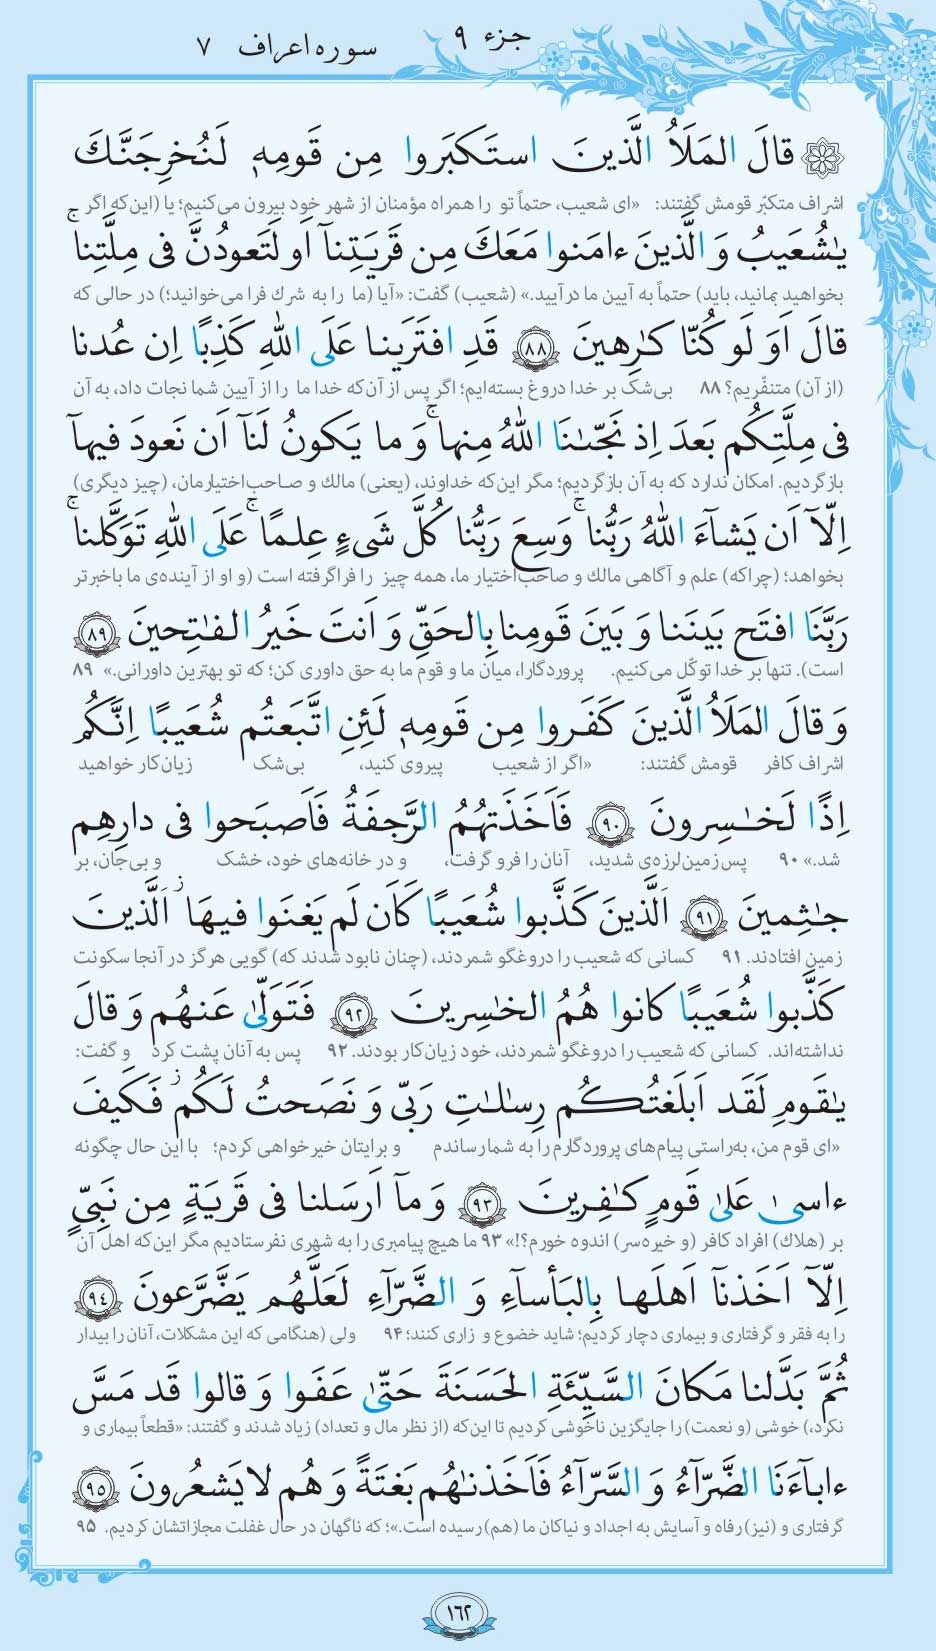 جزء ۹
سوره اعراف ۷
۞ قالَ المَلَأُ الَّذینَ استَکبَروا مِن قَومِهٖ لَنُخرِجَنَّكَ
اشراف متکبّر قومش گفتند: «ای شعیب، حتماً تو را همراه مؤمنان از شهر خود بیرون می‌کنیم؛ یا (این‌که اگر
یٰشُعَیبُ وَ الَّذینَ ءامَنوا مَعَكَ مِن قَریَتِنآ اَو لَتَعودُنَّ فی مِلَّتِنا ۚ
بخواهید بمانید، باید) حتماً به آیین ما درآیید.» (شعیب) گفت: «آیا (ما را به شرك فرا می‌خوانید؛) در حالی که
قالَ اَوَ لَو کُنّا کٰرِهینَ ﴿۸۸﴾ قَدِ افتَرَینا عَلَی اللهِ کَذِبًا اِن عُدنا
(از آن) متنفّریم؟ ۸۸ بی‌شک بر خدا دروغ بسته‌ایم؛ اگر پس از آن‌که خدا ما را از آیین شما نجات داد، به آن
فی مِلَّتِکُم بَعدَ اِذ نَجّىٰنَا اللهُ مِنها ۚ وَ ما یَکونُ لَنآ اَن نَعودَ فیهآ
بازگردیم. امکان ندارد که به آن بازگردیم؛ مگر این‌که خداوند، (یعنی) مالك و صـاحب‌اختیارمان، (چیز دیگری)
اِلّآ اَن یَشآءَ اللهُ رَبُّنا ۚ وَسِعَ رَبُّنا کُلَّ شَیءٍ عِلمًا ۚ عَلَی اللهِ تَوَکَّلنا ۚ
بخواهد؛ (چراکه) علم و آگاهی مالك و صاحب‌اختیار ما، همه چیز را فراگرفته است (و او از آینده‌ی ما باخبرتر
رَبَّنَا افتَح بَینَنا وَ بَینَ قَومِنا بِالحَقِّ وَ اَنتَ خَیرُ الفٰتِحینَ ﴿۸۹﴾
است). تنها بر خدا توکّل می‌کنیم. پروردگارا، میان ما و قوم ما به حق داوری کن؛ که تو بهترین داورانی.» ۸۹
وَ قالَ المَلَأُ الَّذینَ کَفَروا مِن قَومِهٖ لَئِنِ اتَّبَعتُم شُعَیبًا اِنَّکُم
اشراف کافر قومش گفتند: «اگر از شعیب پیروی کنید، بی‌شک زیان‌کار خواهید
اِذًا لَخٰسِرونَ ﴿۹۰﴾ فَاَخَذَتهُمُ الرَّجفَةُ فَاَصبَحوا فی دارِهِم
شد.» ۹۰ پس زمین‌لرزه‌ی شدید، آنان را فرو گرفت، و در خانه‌های خود، خشک و بی‌جان، بر
جٰثِمینَ ﴿۹۱﴾ اَلَّذینَ کَذَّبوا شُعَیبًا کَاَن لَم یَغنَوا فیهَا ۛ اَلَّذینَ
زمین افتادند. ۹۱ کسانی که شعیب را دروغگو شمردند، (چنان نابود شدند که) گویی هرگز در آنجا سکونت
کَذَّبوا شُعَیبًا کانوا هُمُ الخٰسِرینَ ﴿۹۲﴾ فَتَوَلّىٰ عَنهُم وَ قالَ
نداشته‌اند. کسانی که شعیب را دروغگو شمردند، خود زیان‌کار بودند. ۹۲ پس به آنان پشت کرد و گفت:
یٰقَومِ لَقَد اَبلَغتُکُم رِسٰلٰتِ رَبّی وَ نَصَحتُ لَکُم ز فَکَیفَ
«ای قوم من، به‌راستی پیام‌های پروردگارم را به شما رساندم و برایتان خیرخواهی کردم؛ با این حال چگونه
ءاسىٰ عَلىٰ قَومٍ کٰفِرینَ ﴿۹۳﴾ وَ مآ اَرسَلنا فی قَریَةٍ مِن نَبِیٍّ
بر (هلاك) افراد کافر (و خیره‌سر) اندوه خورم؟!» ۹۳ ما هیچ پیامبری را به شهری نفرستادیم مگر این‌که اهل آن
اِلّآ اَخَذنآ اَهلَها بِالبَأسآءِ وَ الضَّرّآءِ لَعَلَّهُم یَضَّرَّعونَ ﴿۹۴﴾
را به فقر و گرفتاری و بیماری دچار کردیم؛ شاید خضوع و زاری کنند؛ ۹۴ ولی (هنگامی که این مشکلات، آنان را بیدار
ثُمَّ بَدَّلنا مَکانَ السَّیِّئَةِ الحَسَنَةَ حَتّىٰ عَفَوا وَ قالوا قَد مَسَّ
نکرد،) خوشی (و نعمت) را جایگزین ناخوشی کردیم تا این‌که (از نظر مال و تعداد) زیاد شدند و گفتند: «قطعاً بیماری و
ءابآءَنَا الضَّرّآءُ وَ السَّرّآءُ فَاَخَذنٰهُم بَغتَةً وَ هُم لا یَشعُرونَ ﴿۹۵﴾
گرفتاری و (نیز) رفاه و آسایش به اجداد و نیاکان ما (هم) رسیده است.»؛ که ناگهان در حال غفلت مجازاتشان کردیم. ۹۵
۱۶۲